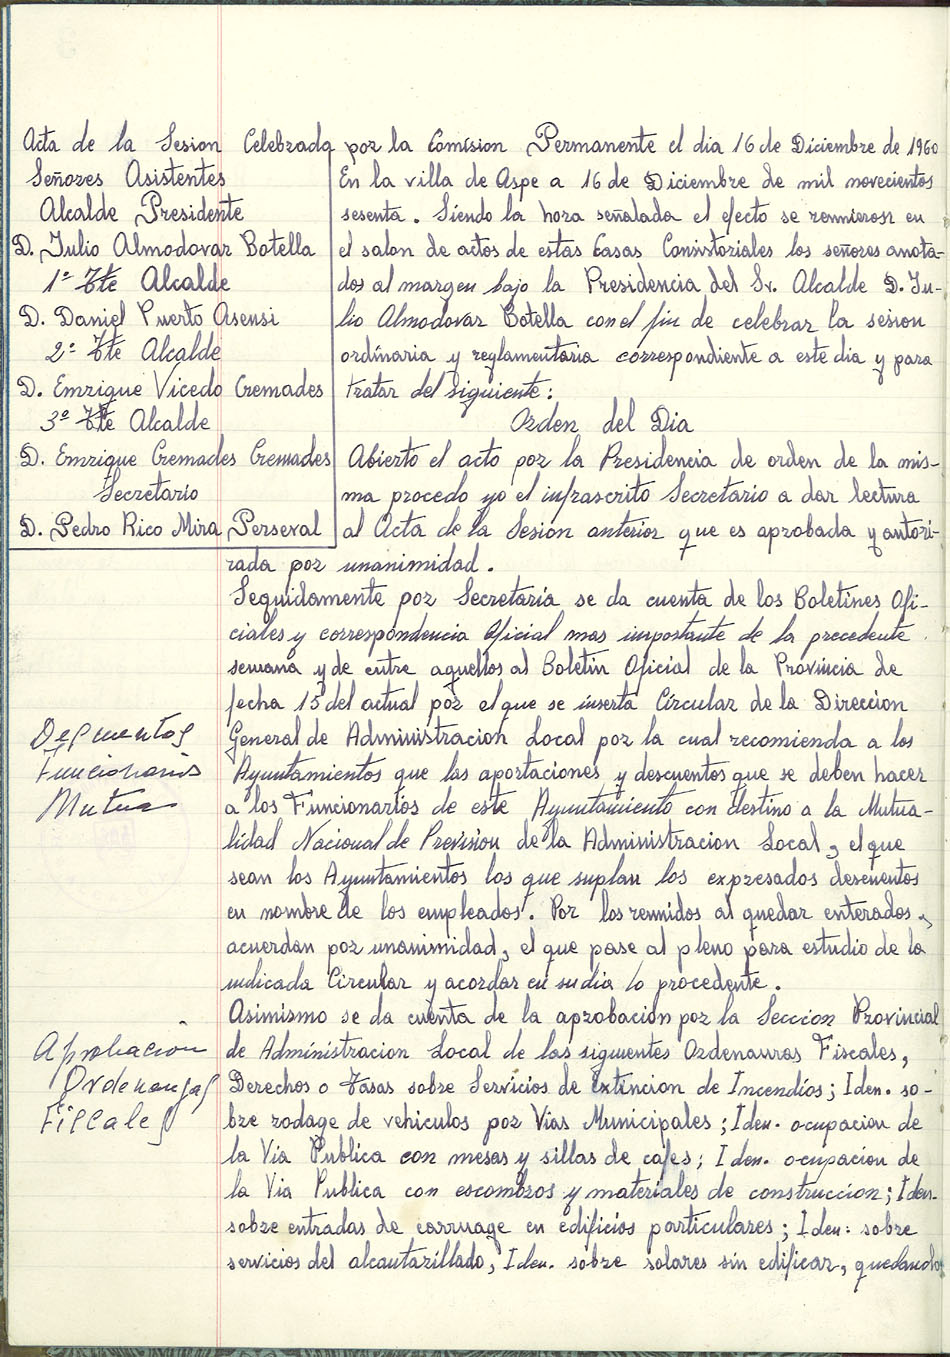 Acta de la Sesion Celebrada por la Comision Permanente el dia 16 de Diciembre de 1960
Señores Asistentes
Alcalde Presidente
D. Julio Almodovar Botella
1º Tte Alcalde
D. Daniel Puerto Asensi
2º Tte Alcalde
D. Enrique Vicedo Cremades
3º Tte Alcalde
D. Enrique Cremades Cremades
Secretario
D. Pedro Rico Mira Perseval
En la villa de Aspe a 16 de Diciembre de mil novecientos
sesenta. Siendo la hora señalada el efecto se reunieron en
el salon de actos de estas Casas Consistoriales los señores anota-
dos al margen bajo la Presidencia del Sr. Alcalde D. Ju-
lio Almodovar Botella con el fin de celebrar la sesion
ordinaria y reglamentaria correspondiente a este dia y para
tratar del siguiente:
Orden del Dia
Abierto el acto por la Presidencia de orden de la mis-
ma procedo yo el infrascrito Secretario a dar lectura
al Acta de la Sesion anterior que es aprobada y autori-
zada por unanimidad.
Seguidamente por Secretaria se da cuenta de los Boletines Ofi-
ciales y correspondencia oficial mas importante de la precedente
semana y de entre aquellos al Boletin Oficial de la Provincia de
fecha 15 del actual por el que se inserta Circular de la Direccion
General de Administracion Local por la cual recomienda a los
Ayuntamientos que las aportaciones y descuentos que se deben hacer
a los Funcionarios de este Ayuntamiento con destino a la Mutua-
lidad Nacional de Prevision de la Administracion Local, el que
sean los Ayuntamientos los que suplan los expresados descuentos
en nombre de los empleados. Por los reunidos al quedar enterados,
acuerdan por unanimidad, el que pase al pleno para estudio de la
indicada Circular y acordar en su dia lo procedente.
Descuentos
Funcionarios
Mutua
Asimismo se da cuenta de la aprobacion por la Seccion Provincial
de Administracion Local de las siguientes Ordenanzas Fiscales,
Derechos o Tasas sobre Servicios de Extincion de Incendios; Iden. so-
bre rodage de vehiculos por Vias Municipales; Iden. ocupacion de
la Via Publica con mesas y sillas de cafes; Iden. ocupacion de
la Via Publica con escombros y materiales de construccion; Iden.
sobre entradas de carruage en edificios particulares; Iden. sobre
servicios del alcantarillado, Iden. sobre solares sin edificar, quedando
Aprobacion
Ordenanzas
Fiscales